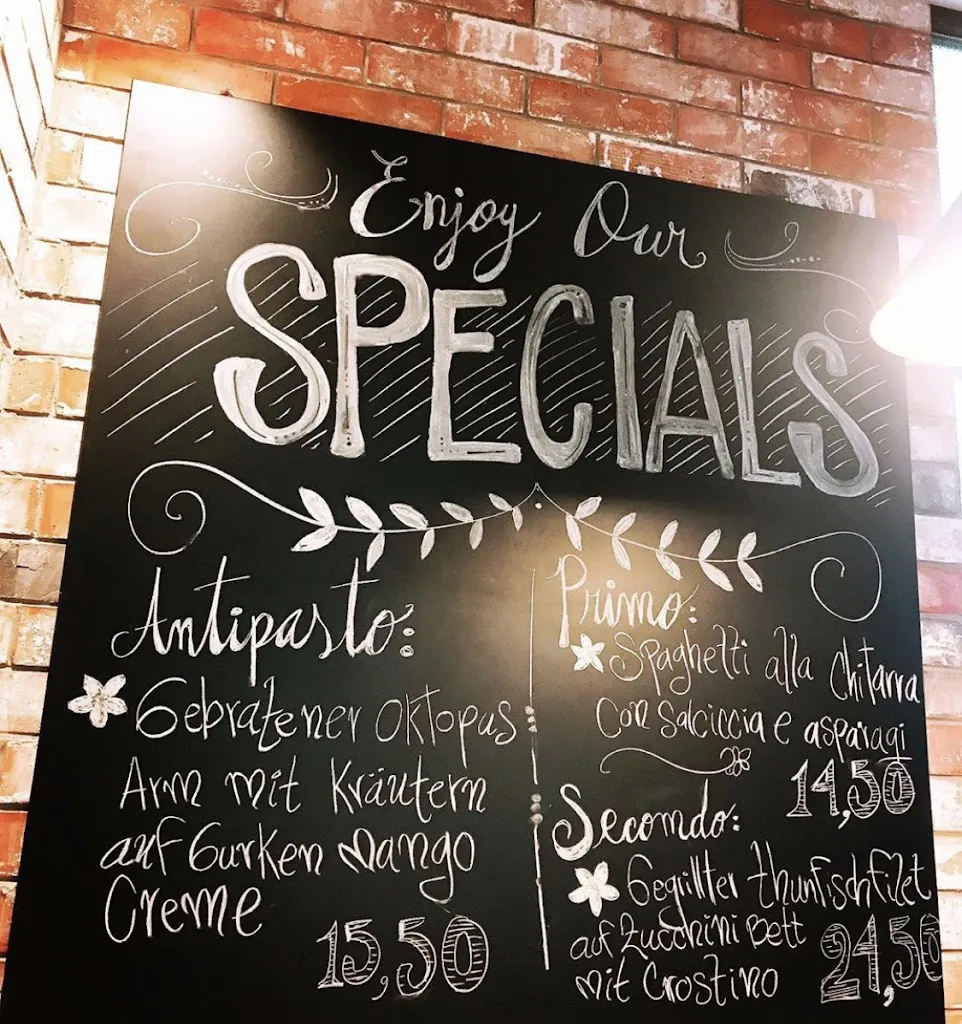 Enjoy Our
SPECIALS
Antipasto:
Gebratener Oktopus
Arm mit Kräutern
auf Gurken Mango
Creme
15,50
Primo:
Spaghetti alla Chitarra
con salciccia e asparagi
14,50
Secondo:
Gegrillter thunfischfilet
auf Zucchini Bett
mit Crostino
24,50